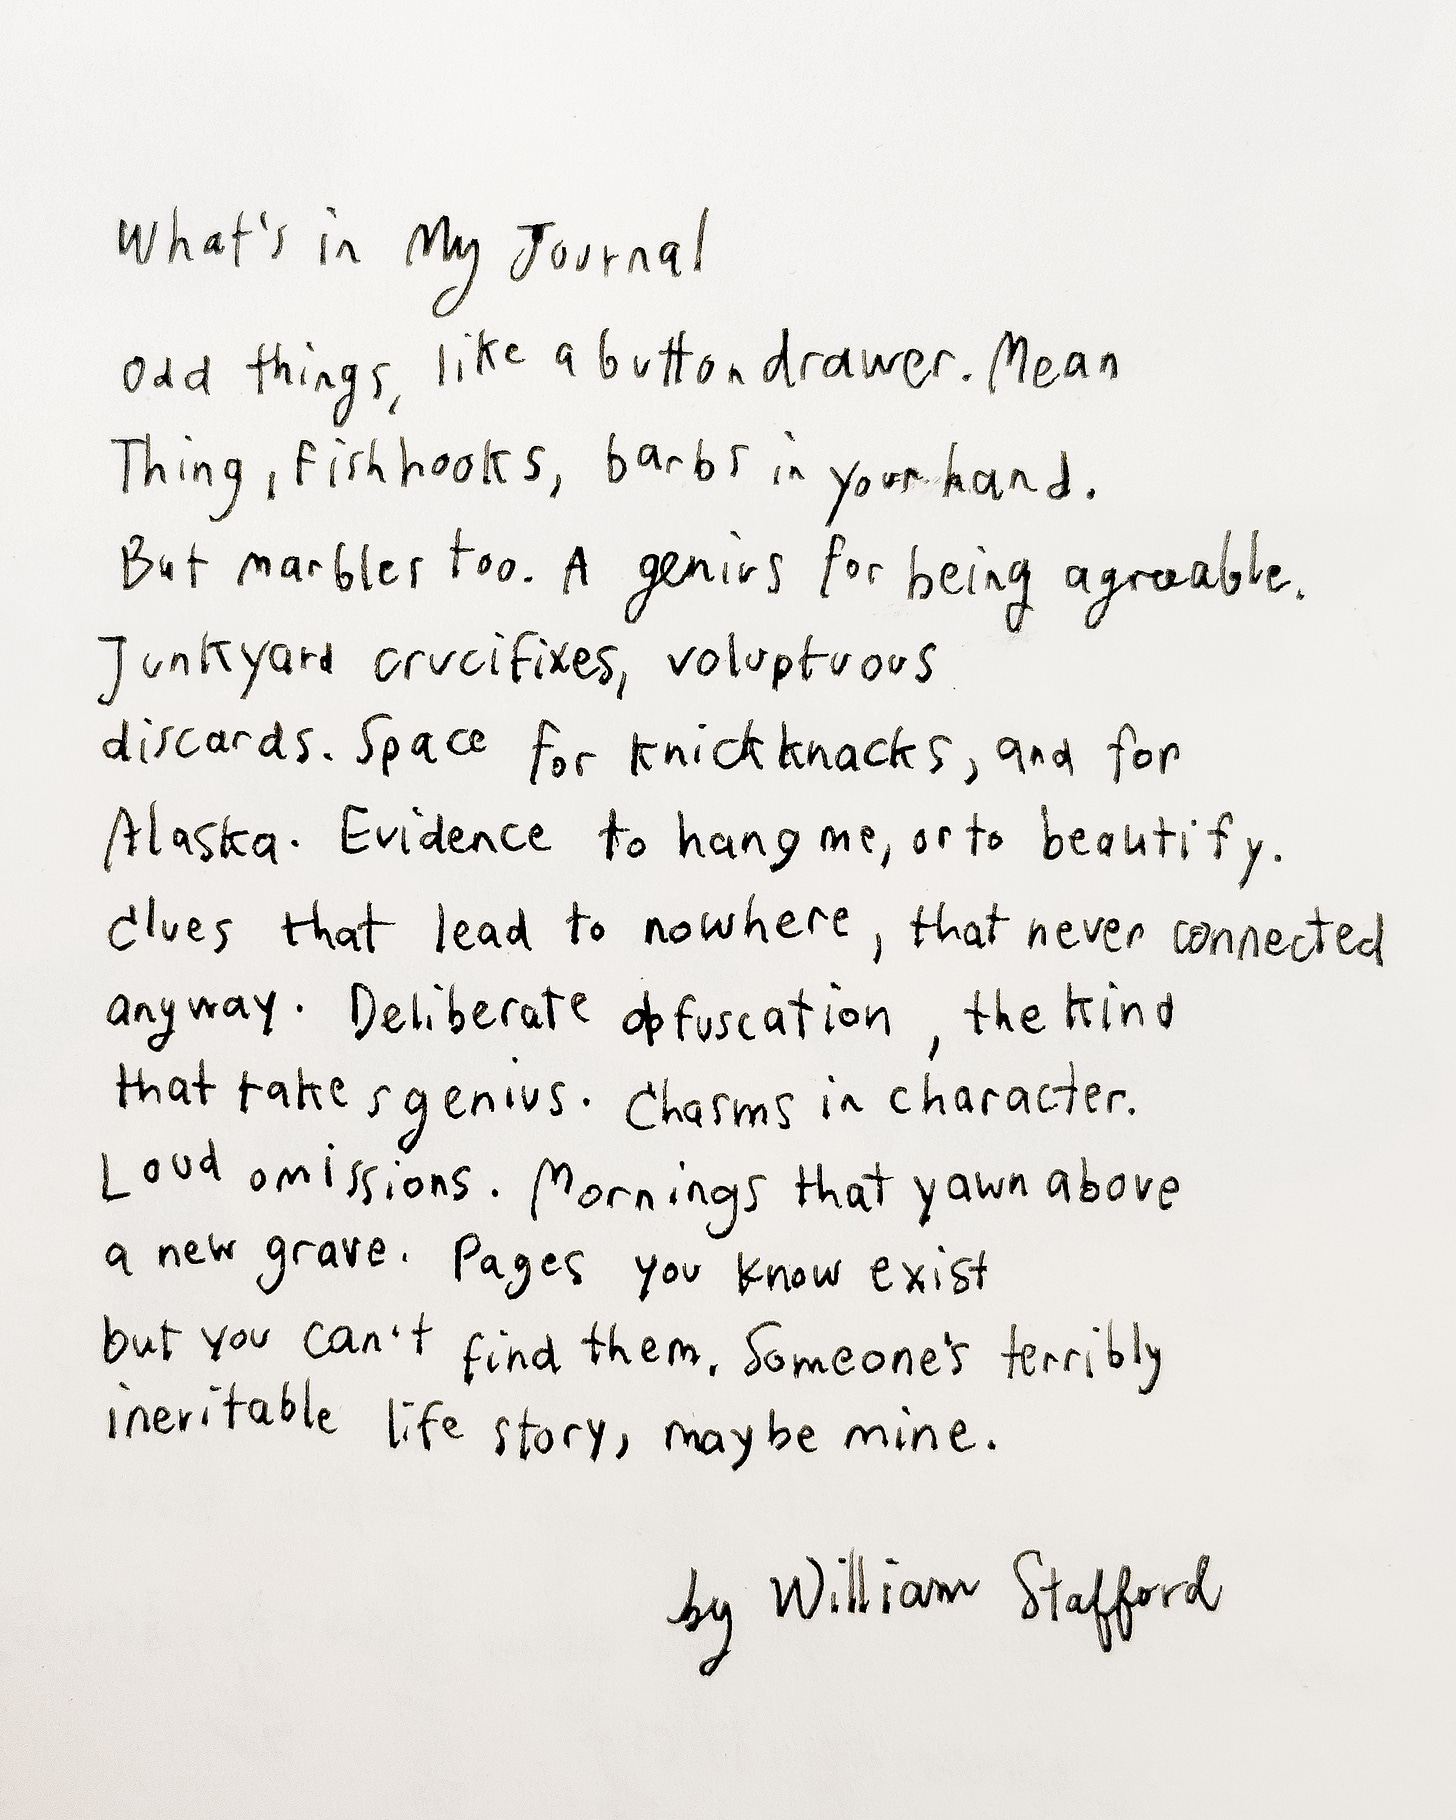 What's in My Journal
Odd things, like a button drawer. Mean
Thing, Fishhooks, barbs in your hand.
But marbles too. A genius for being agreeable.
Junkyard crucifixes, voluptuous
discards. Space for knickknacks, and for
Alaska. Evidence to hang me, or to beautify.
Clues that lead to nowhere, that never connected
anyway. Deliberate obfuscation, the kind
that takes genius. Chasms in character.
Loud omissions. Mornings that yawn above
a new grave. Pages you know exist
but you can't find them. Someone's terribly
inevitable life story, maybe mine.
by William Stafford